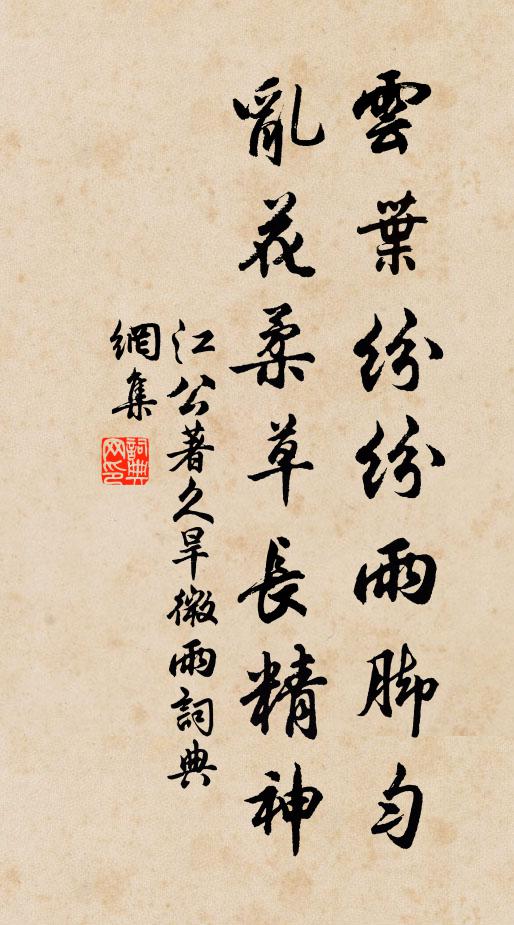 雲葉紛紛雨脚勻
亂花柔草長精神
江公著久旱微雨詞典
網集
詞典
网印